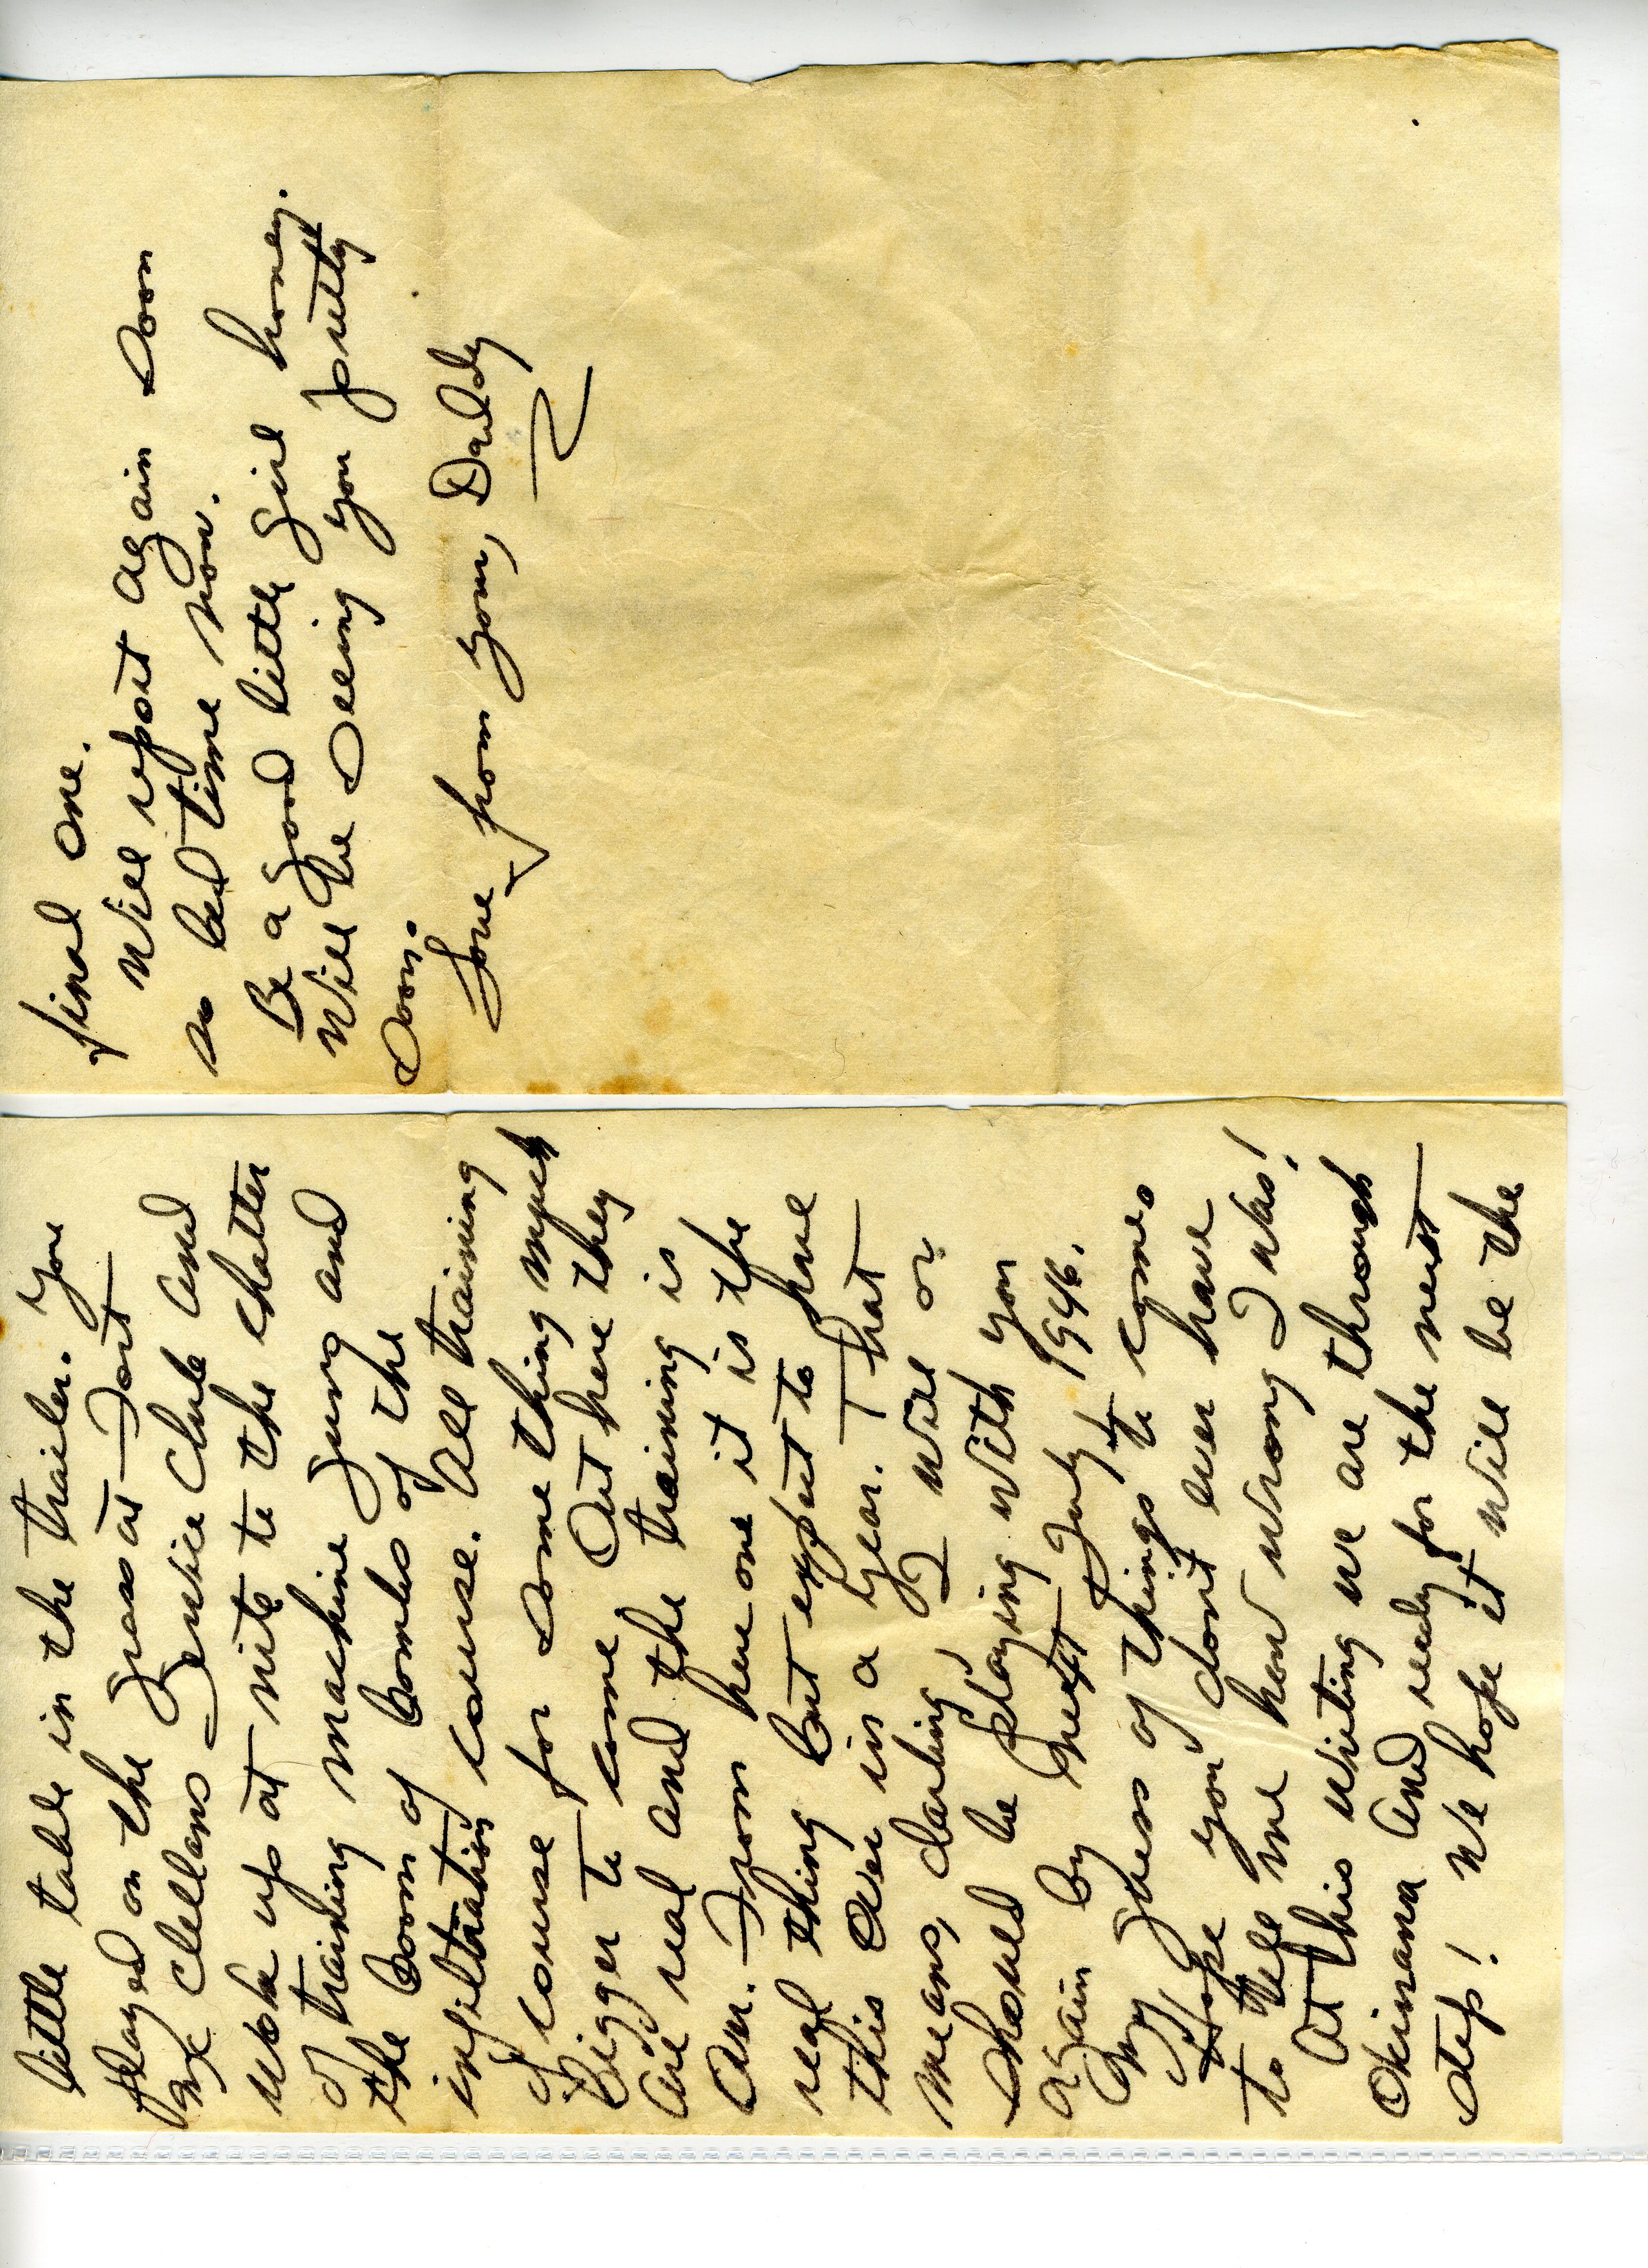 little table in the trailer. You
played on the grass at Fort
Mc Clellans Service Club and
woke up at nite to the chatter
of training machine guns and
the boom of bombs of the
infiltration course. All training
of course for something much
bigger to come. Out here they
are real and the training is
over. From here on it is the
real thing but expect to have
this over in a year. That
means, darling, I will or
should be playing with you
again by next July 1946.
My guess of things to come.
Hope you don't ever have
to tell me how wrong I was!
At this writing we are through
Okinawa and ready for the next
step! We hope it will be the
final one.
Will report again soon
so bed time now.
Be a good little girl honey.
Will be seeing you pretty
soon.
Love from your, Daddy